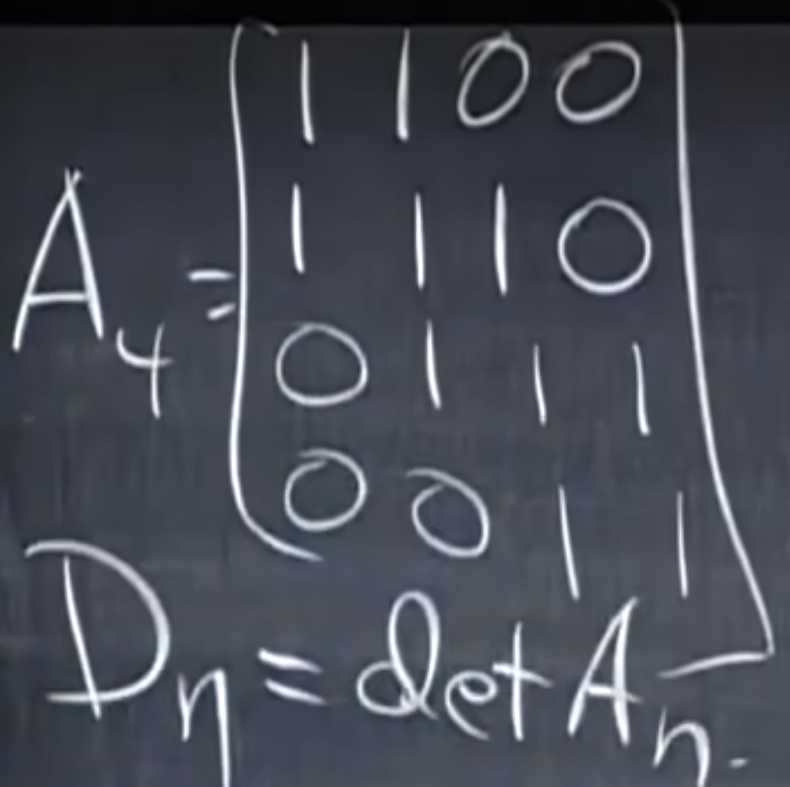 1 1 0 0
1 1 1 0
A₄ =
0 1 1 1
0 0 1 1
Dₙ = det Aₙ.